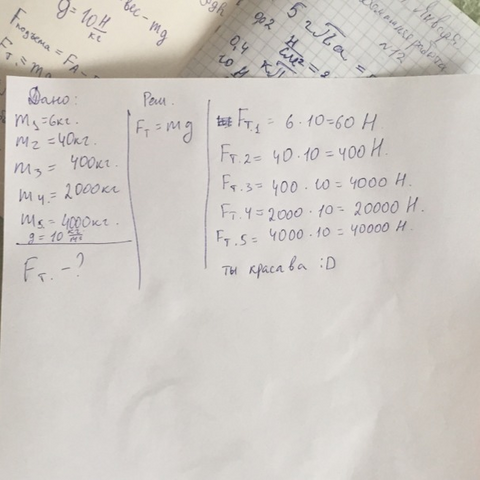 g = 10 Н/кг
вес - mg
Fподъема = FА -
Fт. = mg
5 гПа =
0,4
10 Н
№12
Дано:
m1=6кг.
m2=40кг.
m3= 400кг.
m4= 2000кг
m5= 4000кг.
g=10
Fт. - ?
Реш.
Fт = mg
Fт1 = 6·10=60 Н
Fт.2= 40·10=400 Н.
Fт.3= 400·10= 4000 Н.
Fт.4= 2000·10= 20000 Н.
Fт.5= 4000·10= 40000 Н.
ты красава :D